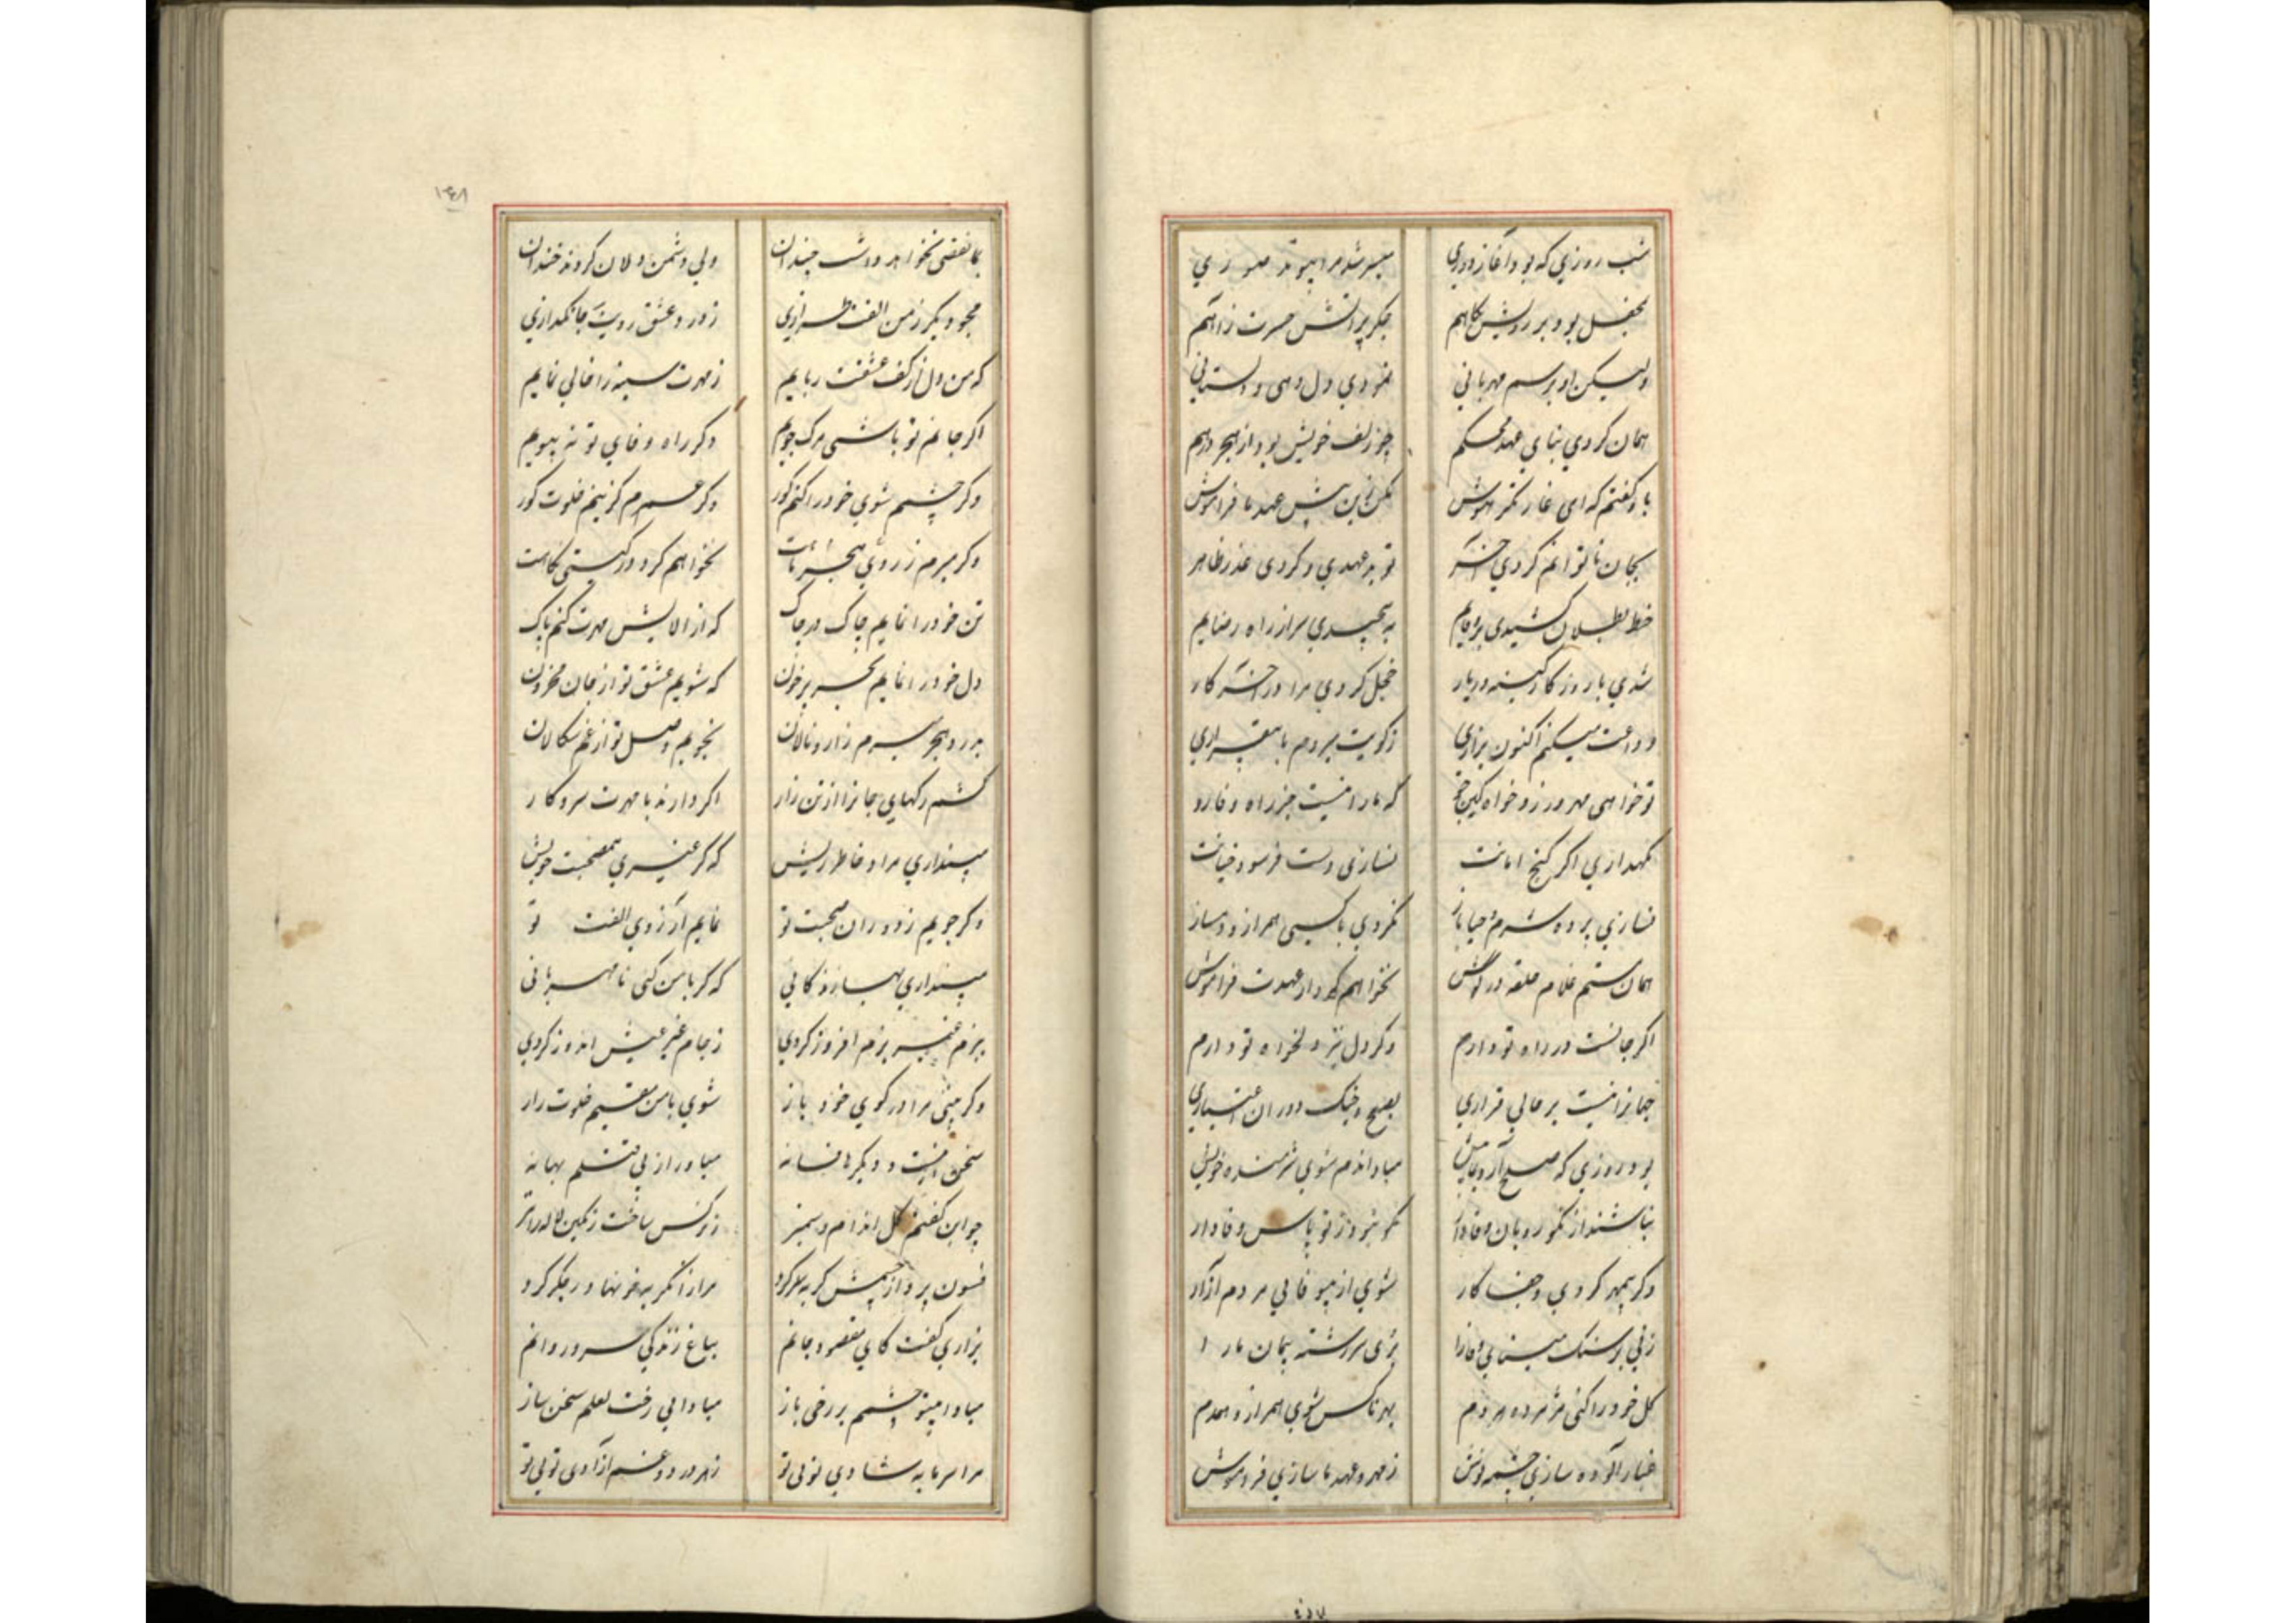 شب روزی که بود آغاز دوری میسر شد مرا پیوند صبوری
بمحفل بود بر رویش نگاهم جگر پر آتش حسرت ز آهم
ولیکن او برسم مهربانی نمودی دل دهی و دلستانی
همان کردی بنای عهد محکم چو زلف خویش بود از هجر درهم
باو گفتم که ای غارتگر هوش مکن زین پیش عهد ما فراموش
بجان ناتوانم کردی آخر تو بدعهدی و کردی عذر ظاهر
خط بطلان کشیدی بر وفایم به پیچیدی سر از راه رضایم
شدی با روزگار کینه ور یار خجل کردی مرا در آخر کار
وداعت میکنم اکنون بزاری ز کویت میروم با بیقراری
تو خواهی مهر ورز و خواه کین جو که ما را نیست جز راه وفا رو
نگهداری اگر گنج امانت نسازی دست فرسود خیانت
نسازی پرده شرم و حیا باز نگردی با کسی همراز و دمساز
همان هستم غلام حلقه در گوش نخواهم کرد از عهدت فراموش
اگر جانست در راه تو دارم وگر دل نیز دلخواه تو دارم
جهانرا نیست بر حالی قراری بصلح و جنگ دوران اعتباری
بود روزی که صلح آرد بمایش مبادا ندم شوی شرمنده خویش
نباشند از نکورویان وفادار نگه نبود ز تو پاس وفادار
وگر بیمهر گردی و جفاکار شوی از بیوفایی مردم آزار
زنی بر سنگ مینای وفا را بری سررشته پیمان ما را
گل خود را کنی پژمرده هر دم بهر ناکس شوی همراز و همدم
غبارآلوده سازی چشمه نوش ز مهر و عهد ما سازی فراموش
۱۴۸
بما نقضی نخواهد داشت چندان ولی دشمن دلان گردند خندان
مجو دیگر ز من الفت طرازی ز درد عشق رویت جانگدازی
که من دل از کف عشقت ربایم ز مهرت سینه را خالی نمایم
اگر جانم تو باشی مرگ جویم وگر راه وفای تو نپویم
وگر چشمم شوی خود را کنم کور وگر عمرم گزینم خلوت گور
وگر میرم ز روی هجر نخواهم کرد در گیتی نگاهت
تن خود را نمایم چاک در چاک که از آلایش مهرت کنم پاک
دل خود را نمایم بحر پر خون که شویم عشق تو از جان محزون
بدرد هجر میرم زار و نالان نجویم وصل تو از غم سگالان
کشم رگهای جانرا از تن زار اگر دارند با مهرت سر و کار
مپنداری مرا و خاطر ریش که گر غیری همصحبت خویش
وگر جویم ز دوران صحبت تو نمایم آرزوی الفت تو
مپنداری بهار زندگانی که گر با من کنی نامهربانی
ببزم غیر بزم افروز گردی ز جام غیر عیش اندوز گردی
وگر بینی مرا در کوی خود باز شوی با من مقیم خلوت راز
سخن اینست و دیگرها فسانه میاور از پی قتلم بهانه
چو این گفتم گل اندام و سمنبر ز نرگس ساخت رنگین لاله را تر
فسون پرداز چشمش گریه سر کرد مرا زان گریه خونها در جگر کرد
بزاری گفت کای مقصود جانم بباغ زندگی سرو روانم
مبادا بیتو چشمم بر رخی باز مبادا بی رخت لعلم سخن ساز
مرا سرمایه شادی تویی تو ز هر درد و غم آزادی تویی تو